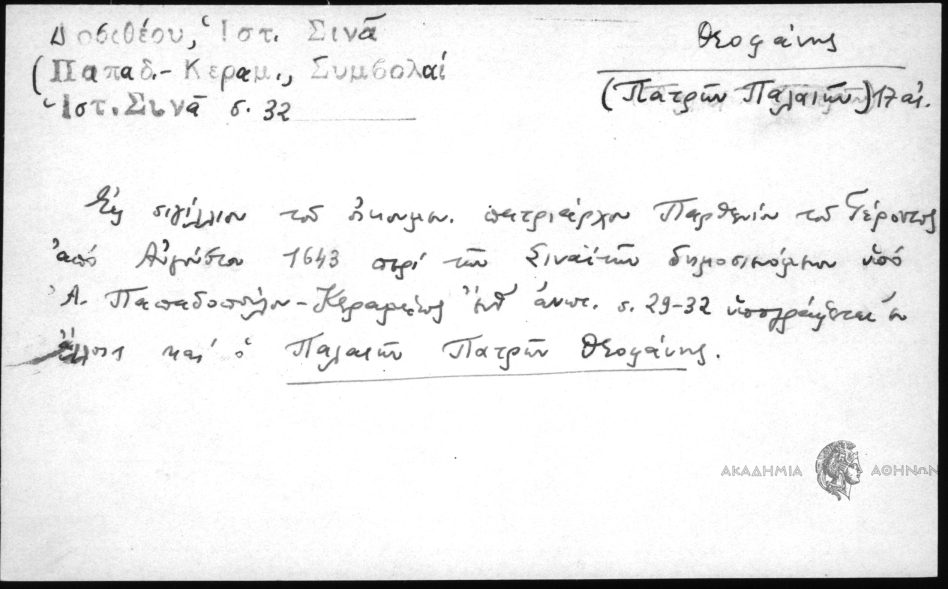 Δοσιθέου, Ἱστ. Σινᾶ
(Παπαδ.-Κεραμ., Συμβολαί
Ἱστ. Σινᾶ σ. 32
Θεοφάνης
(Πατρῶν Παλαιῶν) 17 αἰ.
Εἰς σιγίλλιον τοῦ οἰκουμεν. πατριάρχου Παρθενίου τοῦ Γέροντος
ἀπό Αὐγούστου 1643 περί τῶν Σιναϊτῶν δημοσιευόμενον ὑπό
Ἀ. Παπαδοπούλου-Κεραμέως ἔνθ' ἀνωτ. σ. 29-32 ὑπογράφεται ἐν
ἄλλοις καί ὁ Παλαιῶν Πατρῶν Θεοφάνης.
ΑΚΑΔΗΜΙΑ ΑΘΗΝΩΝ